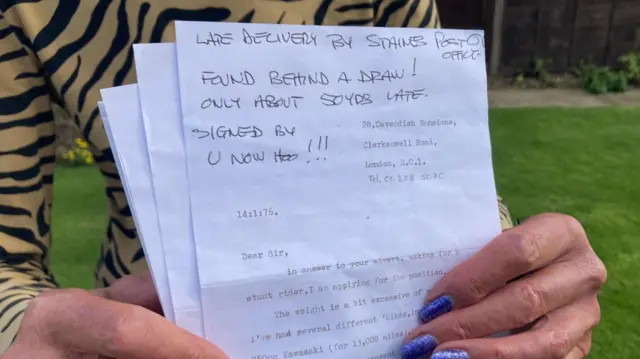 LATE DELIVERY BY STAINES POST OFFICE
FOUND BEHIND A DRAW!
ONLY ABOUT 50YDS LATE.
SIGNED BY
U NOW HOO !!!
28,Cavendish Mansions,
Clerkenwell Road,
London, E.C.1.
TEL 01 278 5070
14:1:76.
Dear Sir,
in answer to your advert, asking for a
stunt rider,I am applying for the position.
The weight is a bit excessive of
i've had several different 'bikes,
Kawasaki (for 13,000 miles)